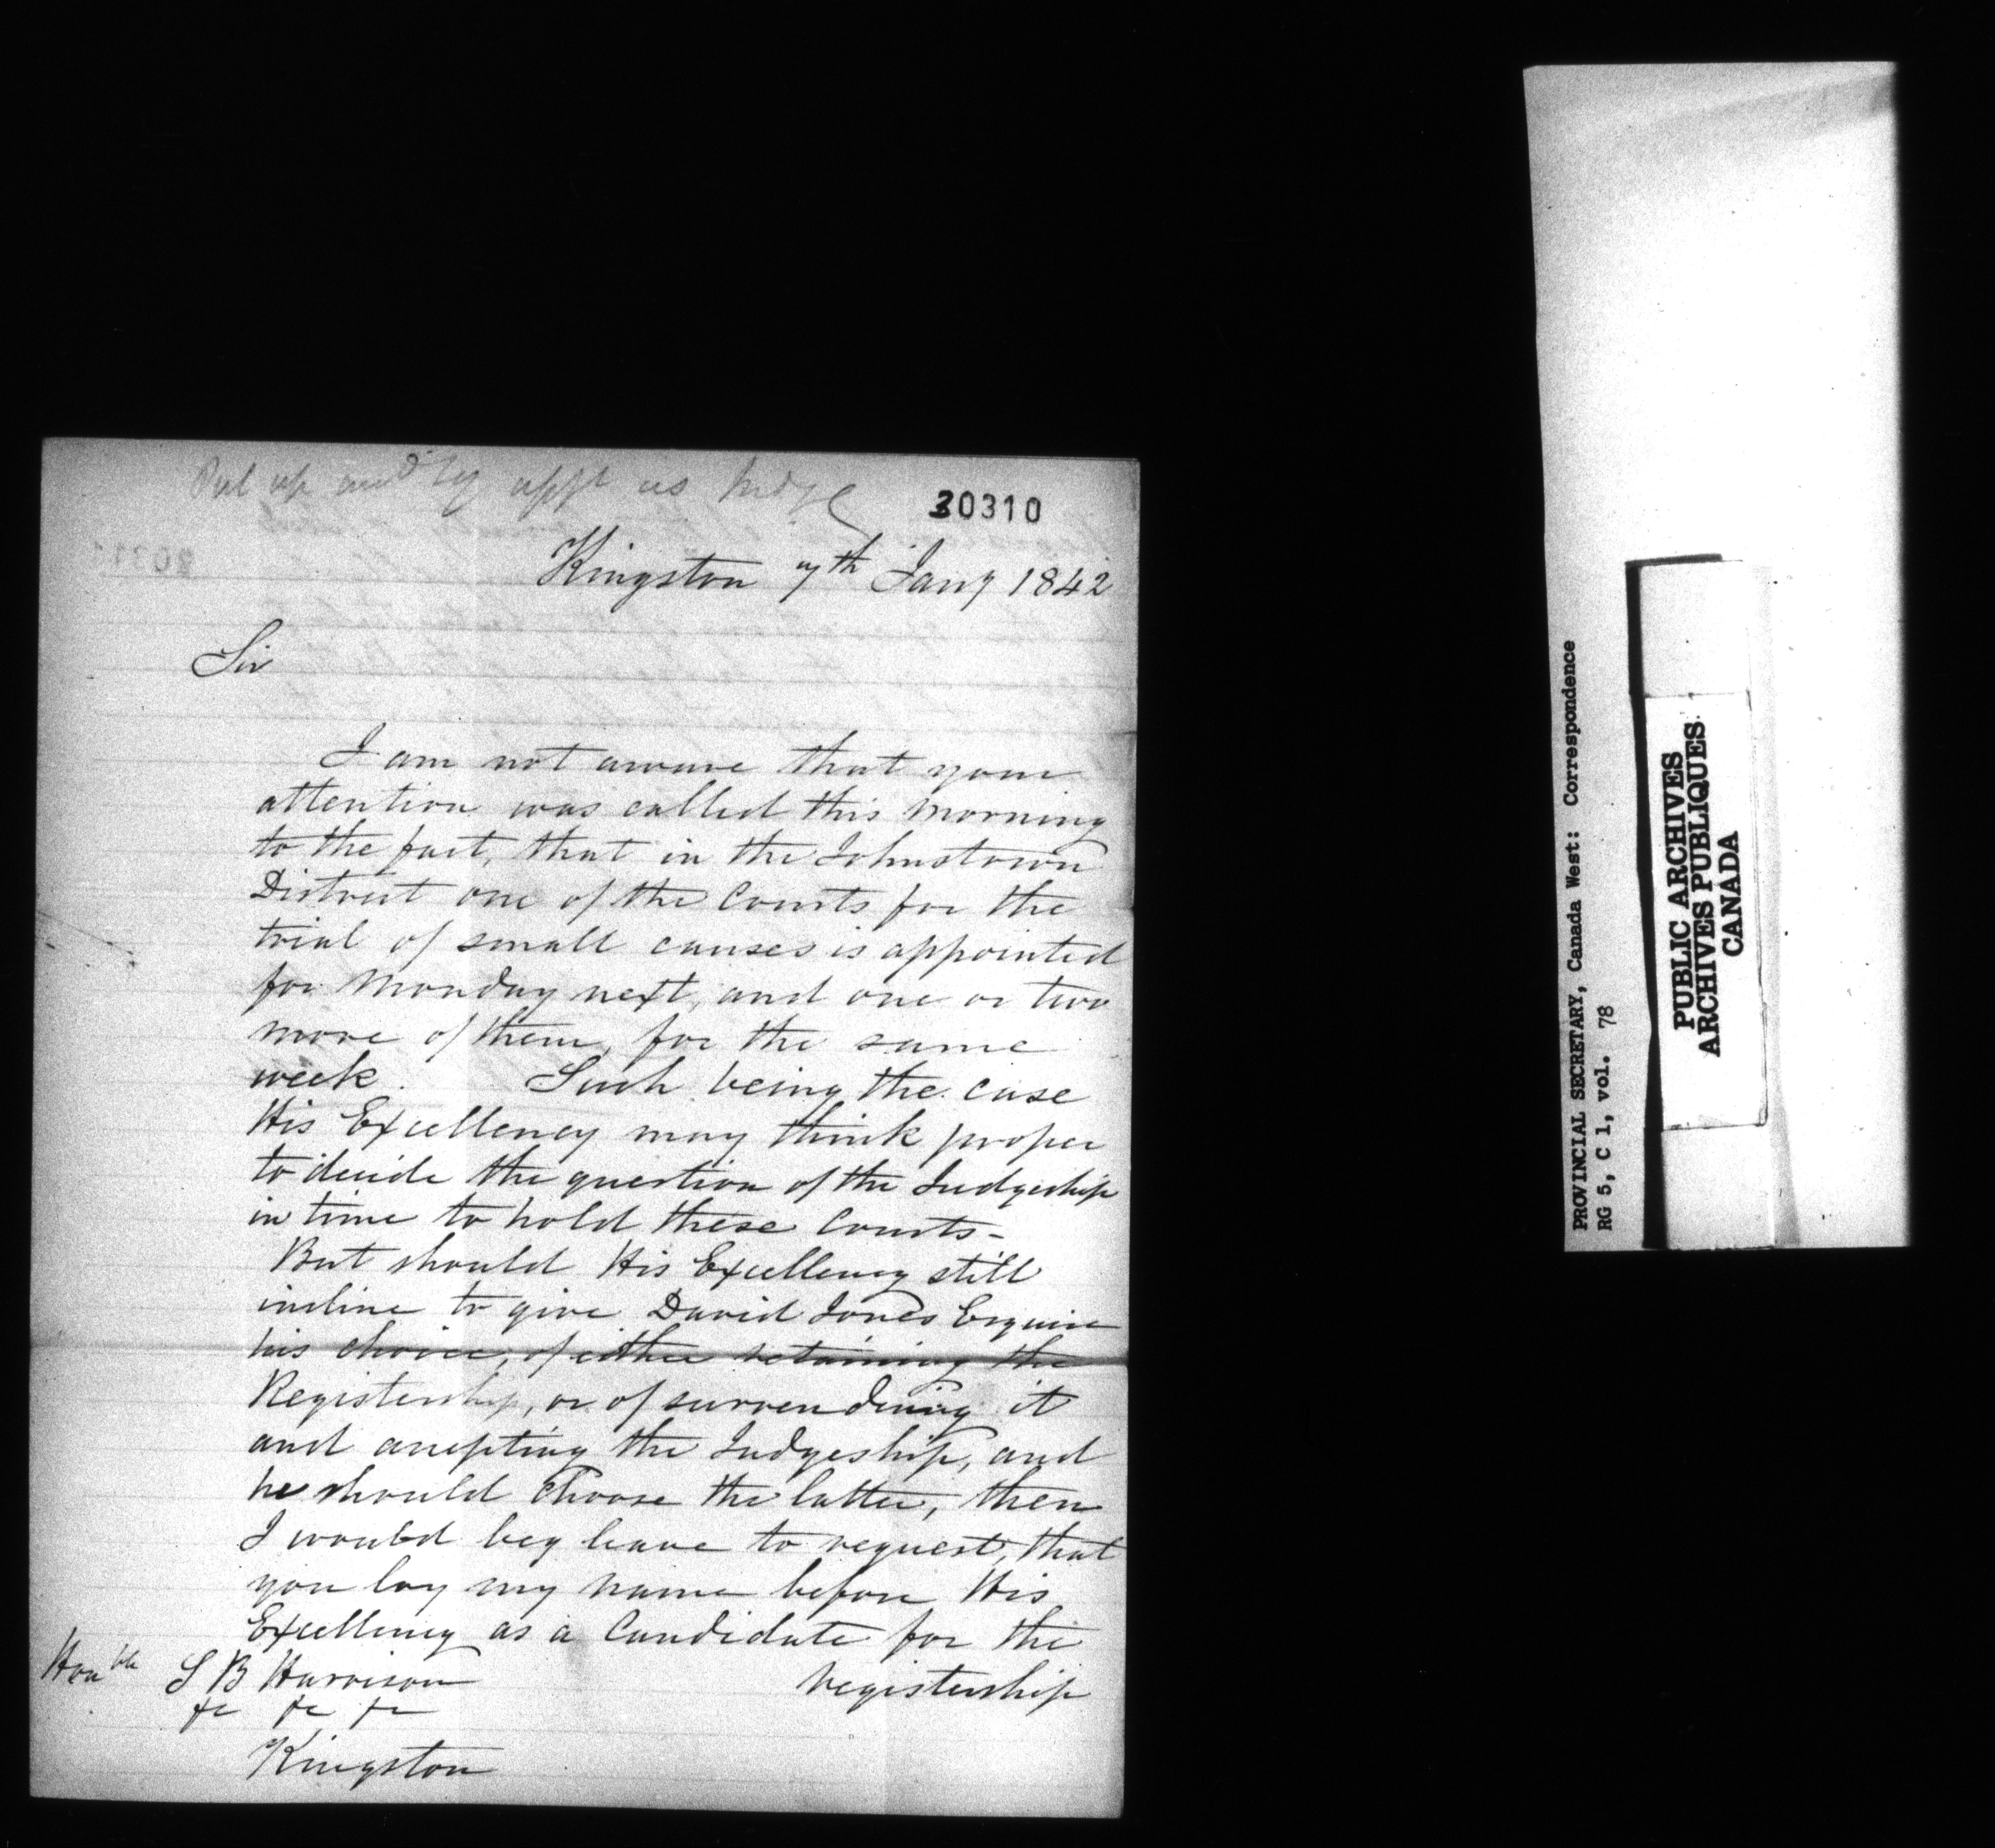 Put up and appt as Judge
30310
Kingston 7th Jany 1842
Sir
I am not aware that your
attention was called this morning
to the fact, that in the Johnstown
District one of the Courts for the
trial of small causes is appointed
for Monday next, and one or two
more of them, for the same
week. Such being the case
His Excellency may think proper
to decide the question of the Judgeship
in time to hold these Courts -
But should His Excellency still
incline to give David Jones Esquire
his choice, of either retaining the
Registership, or of surrendering it
and accepting the Judgeship, and
he should choose the latter, then
I would beg leave to request, that
you lay my name before His
Excellency as a Candidate for the
registership
Honble S B Harrison
&c &c &c
Kingston
PROVINCIAL SECRETARY, Canada West: Correspondence
RG 5, C 1, vol. 78
PUBLIC ARCHIVES
ARCHIVES PUBLIQUES
CANADA